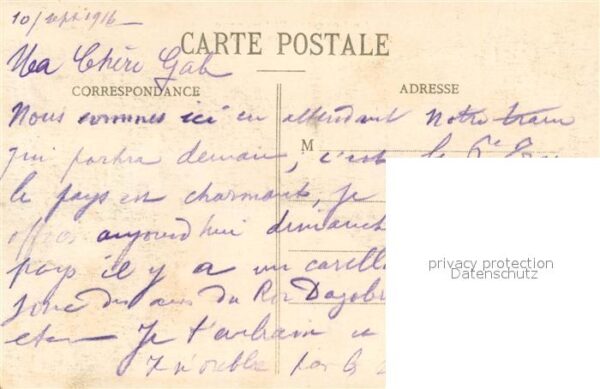 10/ sept 1916
CARTE POSTALE
Ma Chère Gab
CORRESPONDANCE
ADRESSE
Nous sommes ici en attendant notre train
M
qui partira demain, c'est le 6e
le pays est charmant, je
aujourd'hui dimanch
privacy protection
Datenschutz
pays il y a un carill
joue des airs du Roi Dagobe
etc Je t'embrasse
n'oublie pas les